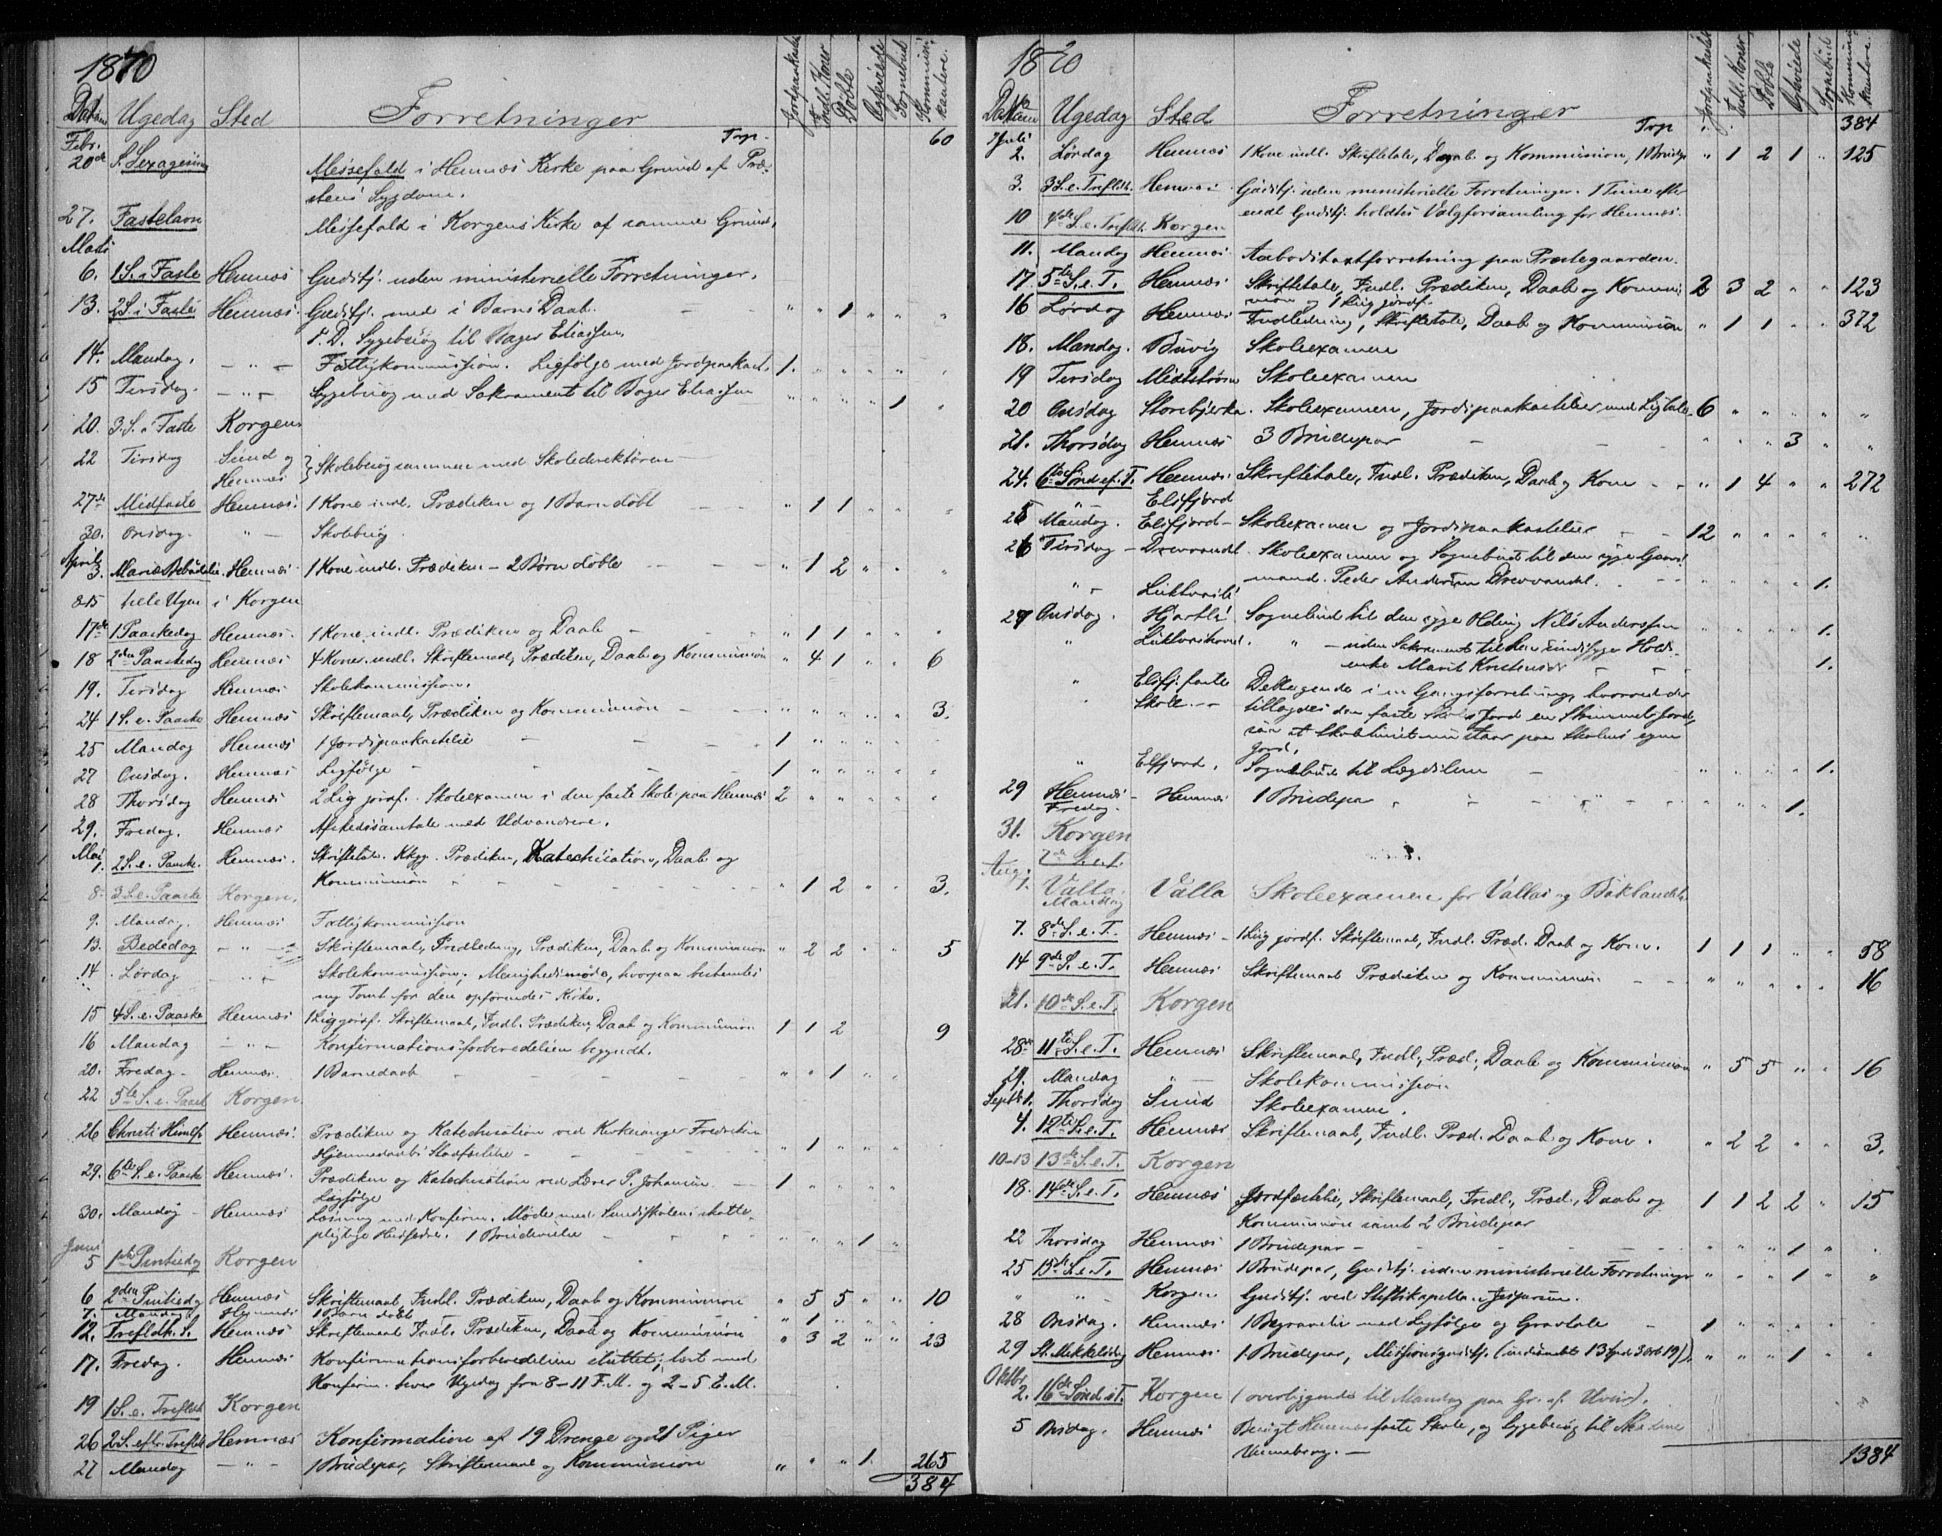 1870
Datum Ugedag Sted Forretninger Jordpaakastelse Indl. Koner Døbte Egteviede Sognebud Kommunikantere.
Trp. 60
Febr.
20de S. Sexagesima Messefald i Hemnæs Kirke paa Grund af Præstens Sygdom.
27. Fastelavn Messefald i Korgens Kirke af samme Grund.
Marts
6. 1 S. i Faste Hemnæs Gudstj. uden ministerielle Forretninger.
13. 2 S. i Faste Hemnæs. Gudstj. med 1 Barns Daab. - - " " 1 " " "
S. D. Sygebesøg til Bager Eliassen.
14. Mandag. - " - Fattigkommission. Ligfølge med Jordpaakast. 1. " " " " "
15 Tirsdag. - " - Sygebesøg med Sakrament til Bager Eliassen " " " " 1 "
20. 3. S. i Faste Korgen
22 Tirsdag Sund og Hemnæs } Skolebesøg sammen med Skoledirektøren
27de Midfaste Hemnæs. 1 Kone indl. Prædiken og 1 Barn døbt " 1 1 " " "
30. Onsdag. " - Skolebesøg.
April
3. Mariæ Bebudelse. Hemnæs. 1 Kone indl. Prædiken - 2 Børn døbte " 1 2 " " "
8-15 hele Ugen i Korgen
17de 1 Paaskedag Hemnæs. 1 Kone indl. Prædiken og Daab " 1 1 " " "
18 2den Paaskedag Hemnæs 4 Koner indl. Skriftemaal, Prædiken, Daab og Kommunion " 4 1 " " 6
19. Tirsdag Hemnæs Skolekommission.
24 1 S. e. Paaske Hemnæs Skriftemaal, Prædiken og Kommunion " " " " " 3.
25 Mandag Hemnæs 1 Jordspaakastelse 1 " " " " "
27 Onsdag. Hemnæs Ligfølge 1 " " " " "
28 Thorsdag Hemnæs 2 Lig jordf. Skoleexamen i den faste Skole paa Hemnæs 2 " " " " "
29. Fredag. Hemnæs Afskedssamtale med Udvandrere.
Mai
1. 2 S. e. Paaske. Hemnæs. Skriftetale. Prædiken, Katechisation, Daab og
Kommunion " 1 2 " " 3.
8. 3 S. e. Paaske Korgen.
9. Mandag. Hemnæs Fattigkommission
13. Bededag - " - Skriftemaal, Indledning, Prædiken, Daab og Kommunion " 2 2 " " 5
14. Lørdag " " Skolekommission; Menighedsmøde, hvorpaa bestemtes
ny Tomt for den opførendes Kirke.
15 4 S. e. Paaske Hemnæs 1 Lig jordf. Skriftemaal, Indl. Prædiken, Daab og Kommunion 1 1 2 " " 9
16 Mandag - " - Konfirmationsforberedelsen begyndt.
20. Fredag - Hemnæs. 1 Barnedaab " " 1 " " "
22 5te S. e. Paaske Korgen.
26 Christi Himlf. Hemnæs. Prædiken og Katechisation ved Kirkesanger Fredriksen
Hjemmedaabs Stadfæstelse " 1 " " "
29. 6te S. e. Paaske Hemnæs. Prædiken og Katechisation ved Lærer P. Johansen. 1 " " " "
Ligfølge
30. Mandag - Hemnæs Læsning med Konfirm. Møde med Sundskolens skattepligtige Husfædre. 1 Brudevielse " " " 1 " "
Juni
5 1ste Pintsedag Korgen
6 2den Pintsedag Hemnæs Skriftemaal, Indl. Prædiken, Daab og Kommunion " 5 5 " " 10
7. Mandag Hemnæs 1 Barn døbt " 1 " " " .
12. Trefoldh. S. Hemnæs Skriftemaal Indl. Prædiken, Daab og Kommunion " 3 2 " " 23
17. Fredag. Hemnæs Konfirmationsforberedelsen sluttet; læst med
Konfirm. hver Ugedag fra 8-11 F.M. og 2-5 E.M.
19 1 S. e. Trefldh Korgen
26 2 S. efter Trefldh Hemnæs Konfirmation af 19 Drenge og 21 Piger
27 Mandag - " - 1 Brudepar, Skriftemaal og Kommunion " " " 1. 265
384
1870
Datum Ugedag Sted Forretninger Jordpaakastelse Indl. Koner Døbte Egteviede Sognebud Kommunikantere.
Trp " . 384
Juli
2. Lørdag Hemnæs 1 Kone indl. Skriftetale, Daab og Kommunion, 1 Brudep. " 1 2 1 " 125
3. 3 S. e. Trefldh. Hemnæs. Gudstj. uden ministerielle Forretninger. 1 Time efter
endt Gudstj. holdtes Valgforsamling for Hemnæs.
10 4de S. e. Trefldh. Korgen
11. Mandag Hemnæs. Aabodstaxtforretning paa Præstegaarden.
17. 5te S. e. T. Hemnæs. Skriftetale, Indl. Prædiken, Daab og Kommunion og 1 Lig jordf. 2 3 2 " " 123
16 Lørdag Hemnæs Indledning, Skriftetale, Daab og Kommunion " 1 1 " " 372
18. Mandag. Buvig Skoleexamen
19 Tirsdag Midtstrøm Skoleexamen
20 Onsdag Storebjerka. Skoleexamen, Jordspaakastelser med Ligtale 6 " " " " "
21. Thorsdag Hemnæs 3 Brudepar " " " 3 " "
24. 6te Sønd. ef. T. Hemnæs. Skriftetale, Indl. Prædiken, Daab og Kom " 1 4 " " 272
" - Elsfjord
25 Mandag. Elsfjord - Skoleexamen og Jordspaakastelser 12 " " " " "
26 Tirsdag - Drevvandet. Skoleexamen og Sognebud til den syge Gaardmand. Peder Andersen Drevvandet.
" - Luktvasli " " " " 1.
27 Onsdag. Hjartli Sognebud til den syge Olding Nils Andersen " " " " 1.
" Luktvasstrand. " - uden Sakrament til den sindssyge Holdsenke Marit Kristensdr. 1.
" Elsfj. faste Skole. - Deltagende i en Gangsforretning, hvorved der
tillagdes den faste Skoles Jord en Strimmel Jord,
saa at Skolehuset nu staar paa Skolens egen
Jord.
" Elsfjord. Sognebud til Lægdslem " " " " 1.
29 Hemnæs - Fredag. Hemnæs 1 Brudepar " " " 1.
31. Korgen
7de S. e. T.
Aug.
1. Valla. Mandag Valla Skoleexamen for Vallas og Baklandets
7. 8de S. e. T. Hemnæs - 1 Lig jordf. Skriftemaal, Indl. Præd. Daab og Kom. 1 1 1 " " 58
14 9de S. e. T. Hemnæs Skriftemaal Prædiken og Kommunion " " " " " 16
21. 10de S. e. T. Korgen
28de 11te S. e. T. Hemnæs Skriftemaal, Indl., Præd., Daab og Kommunion " 5 5 " " 16
29. Mandag " - Skolekommission
Septb. 1. Thorsdag Sund Skoleexamen.
4. 12te S. e. T. Hemnæs Skriftemaal, Indl. Præd. Daab og Kom. " 2 2 " " 3.
10-13 13de S. e. T. Korgen
18. 14de S. e. T. Hemnæs Jordfæstelse, Skriftemaal, Indl., Præd., Daab og 1 1 2 2 " 15
Kommunion samt 2 Brudepar
22 Thorsdag Hemnæs 1 Brudepar - " " " 1 " "
25 15de S. e. T. Hemnæs 1 Brudepar, Gudstj. uden ministerielle Forretninger " " " 1 " "
" " Korgen Gudstj. ved Stiftskapellan Jespersen.
28 Onsdag. Hemnæs 1 Begravelse med Ligfølge og Gravtale 1 " " " " "
29 St. Mikkelsdag Hemnæs 1 Brudepar, Missionsgudstj. (indsamlet 13 Spd 3 Ort 19 ß). " " " 1 " "
Oktbr.
2. 16de Sønd. e. T. Korgen (overliggende til Mandag paa Gr. af Uveir).
5 Onsdag. Hemnæs Besøgt Hemnæs faste Skole, og Sygebesøg til
1384